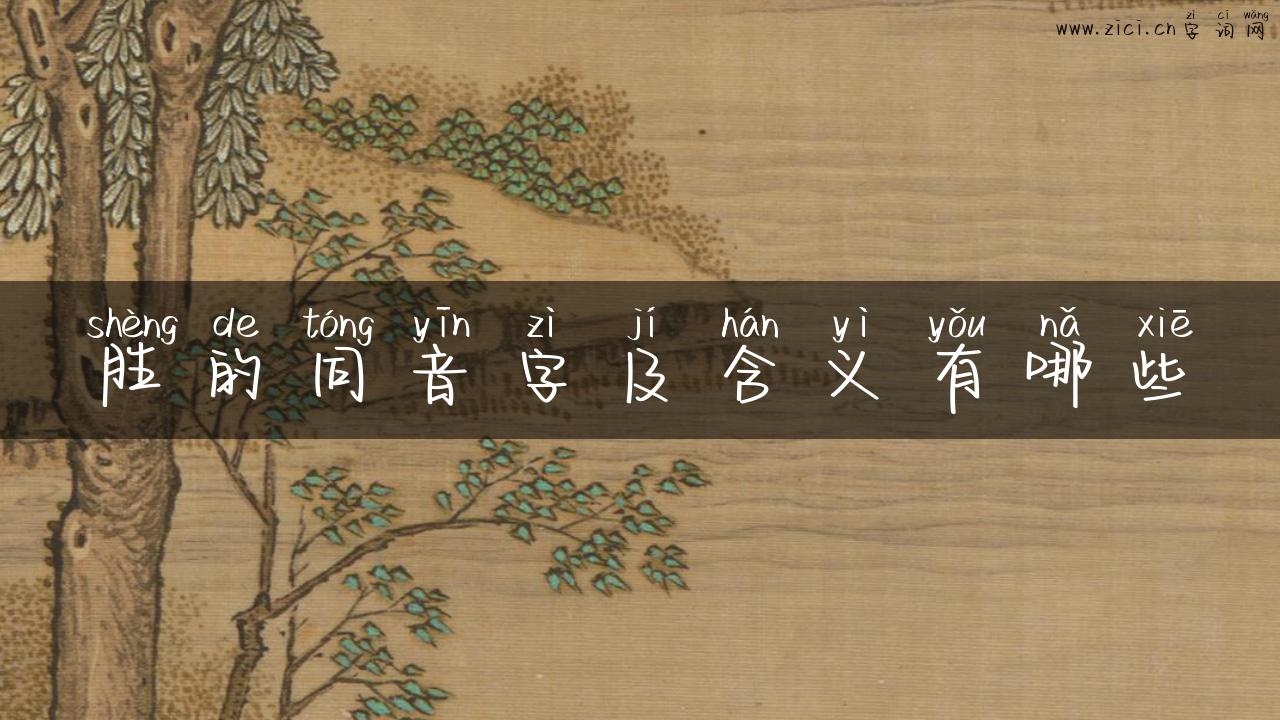 zì cí wǎng
www.zici.cn 字词网
shèng de tóng yīn zì jí hán yì yǒu nǎ xiē
胜的同音字及含义有哪些